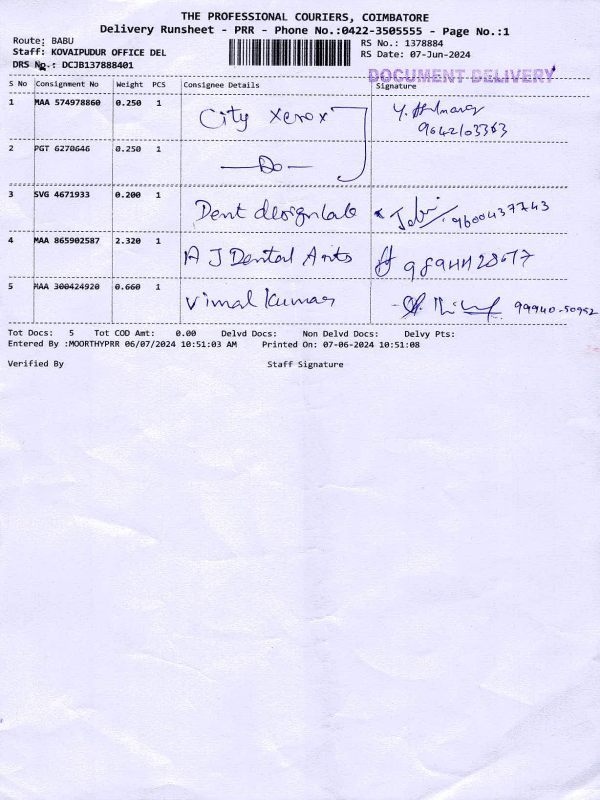 THE PROFESSIONAL COURIERS, COIMBATORE
Delivery Runsheet - PRR - Phone No.:0422-3505555 - Page No.:1
Route: BABU RS No.: 1378884
Staff: KOVAIPUDUR OFFICE DEL RS Date: 07-Jun-2024
DRS No.: DCJB137888401
DOCUMENT DELIVERY
S No Consignment No Weight PCS Consignee Details Signature
1 MAA 574978860 0.250 1 City Xerox
9642103363
2 PGT 6270646 0.250 1 —Do—
3 SVG 4671933 0.200 1 Dent designlab 9600437743
4 MAA 865902587 2.320 1 A J Dental Arts
5 MAA 300424920 0.660 1 Vimal Kumar 99940-50952
Tot Docs: 5 Tot COD Amt: 0.00 Delvd Docs: Non Delvd Docs: Delvy Pts:
Entered By :MOORTHYPRR 06/07/2024 10:51:03 AM Printed On: 07-06-2024 10:51:08
Verified By Staff Signature